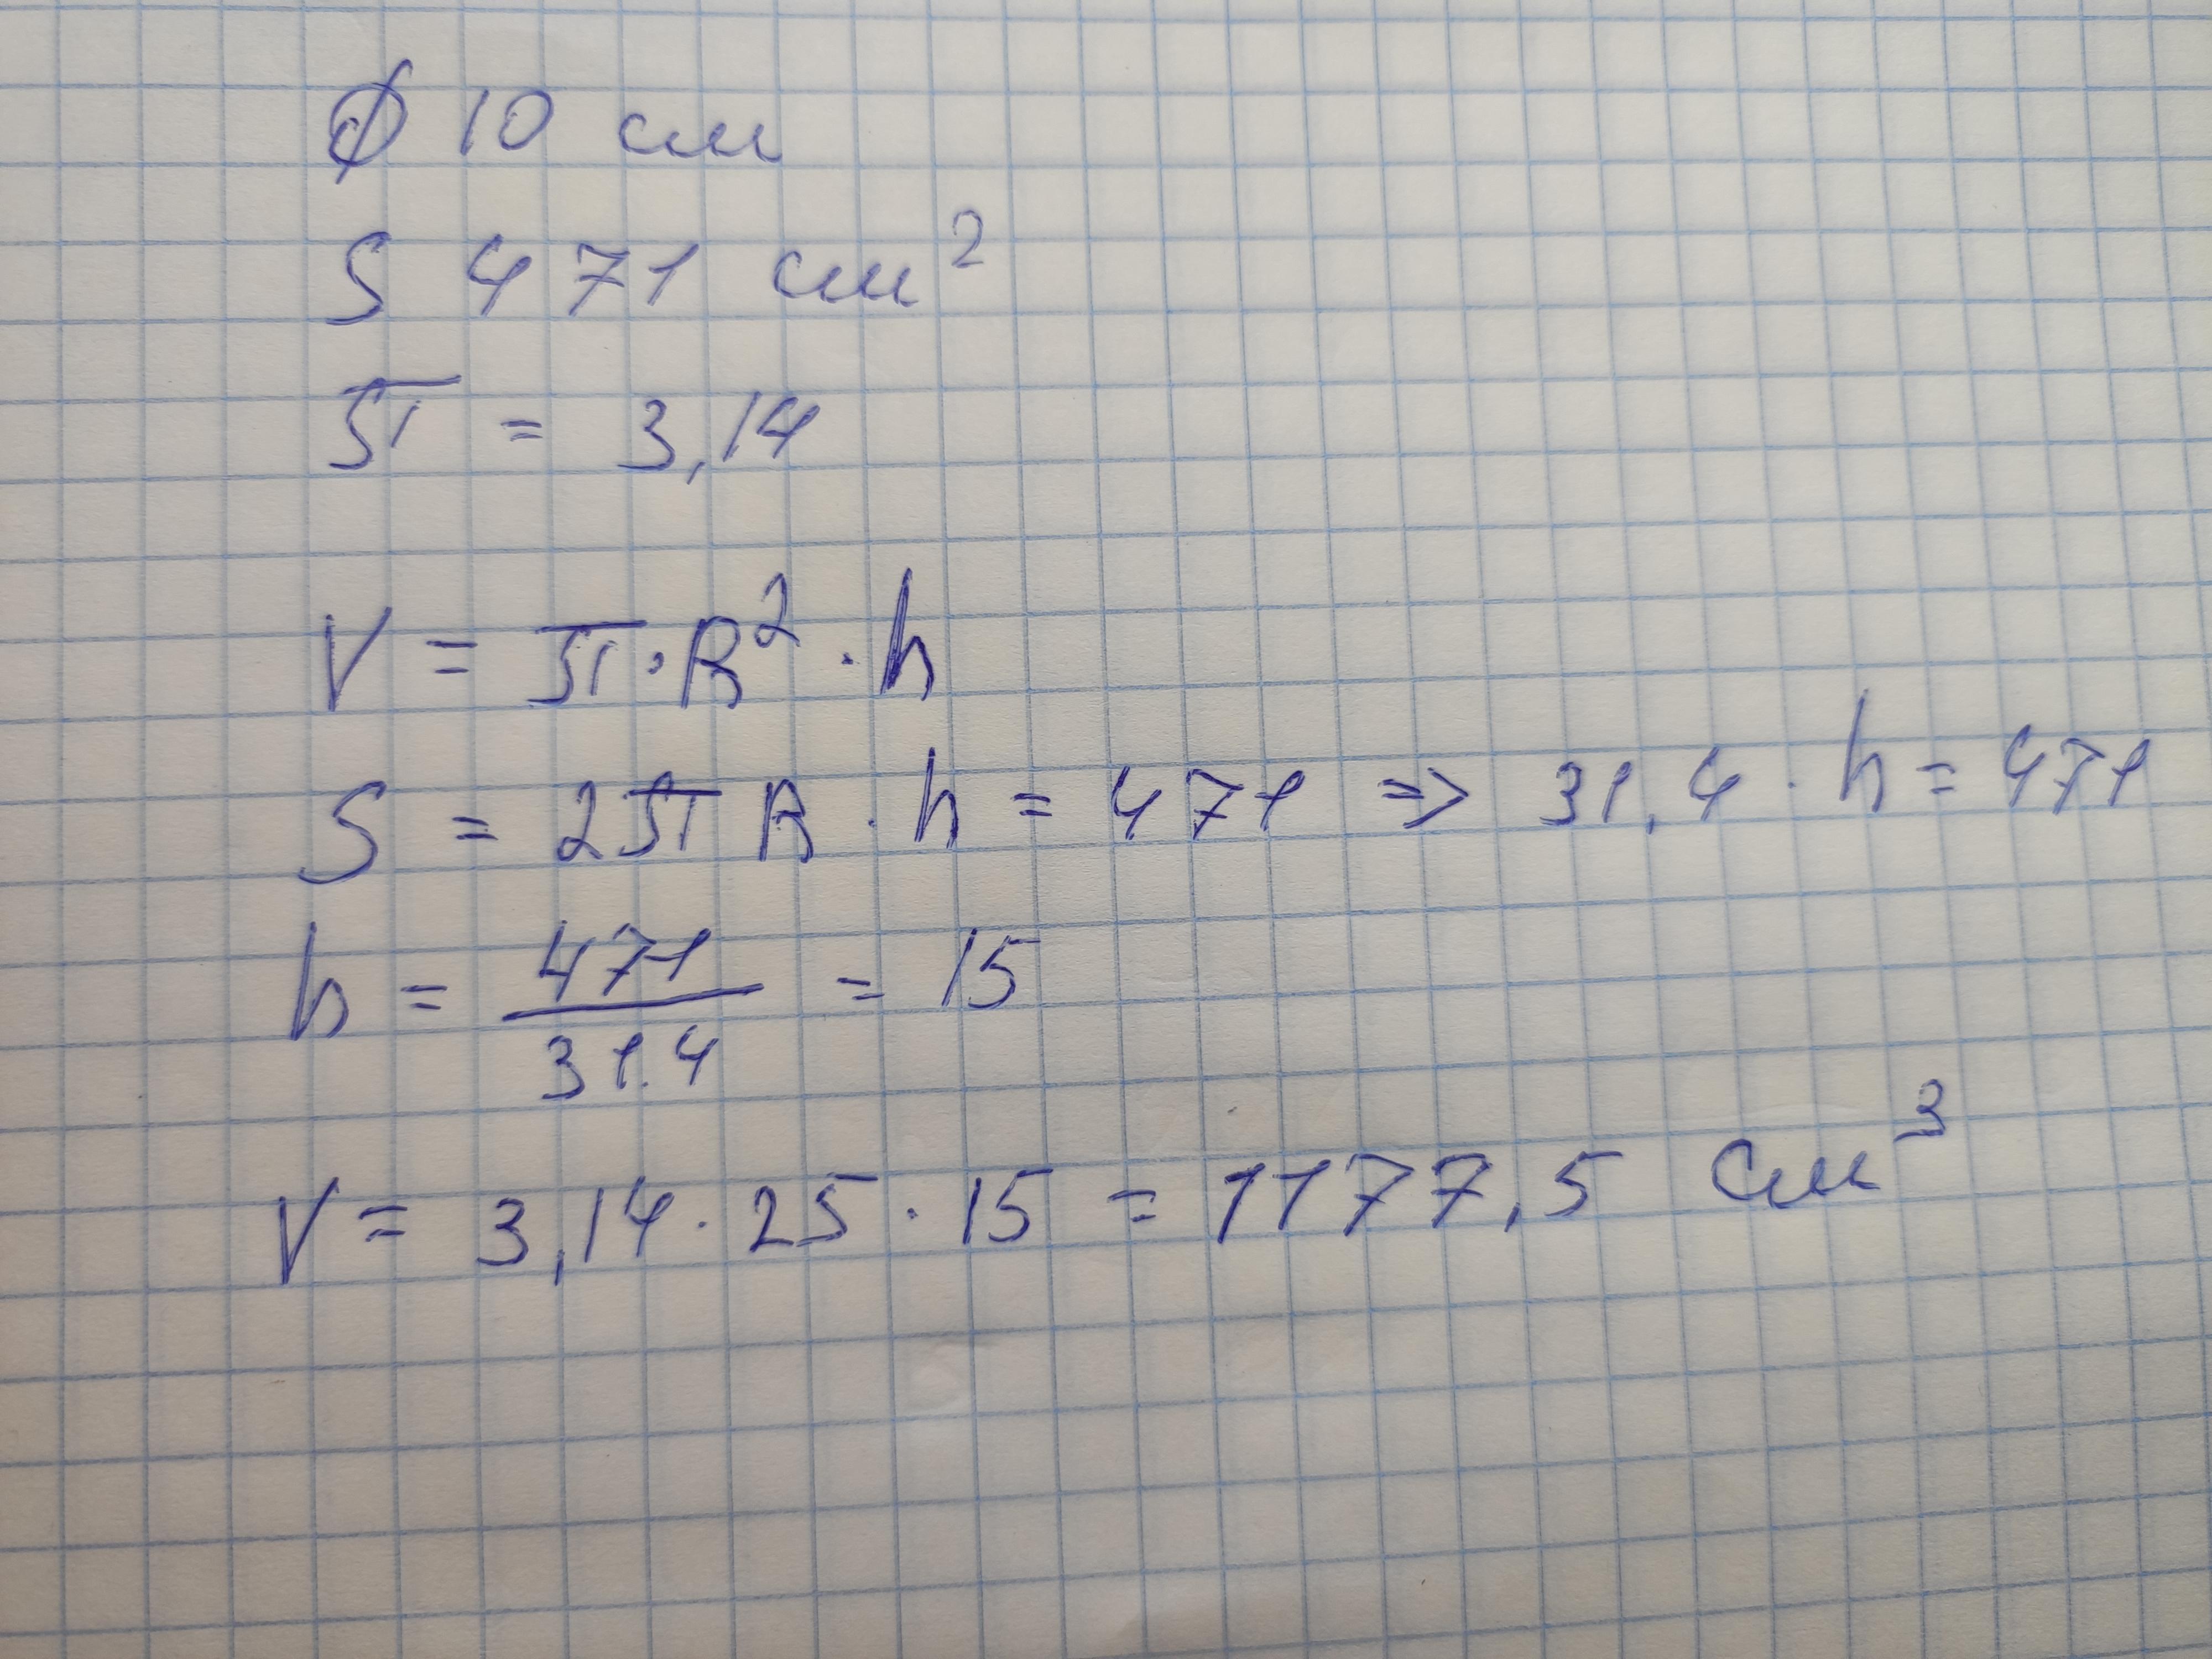 ∅ 10 см
S 471 см²
π = 3,14
V = π · R² · h
S = 2πR · h = 471 => 31,4 · h = 471
h = 471/31.4 = 15
V = 3,14 · 25 · 15 = 1177,5 см³